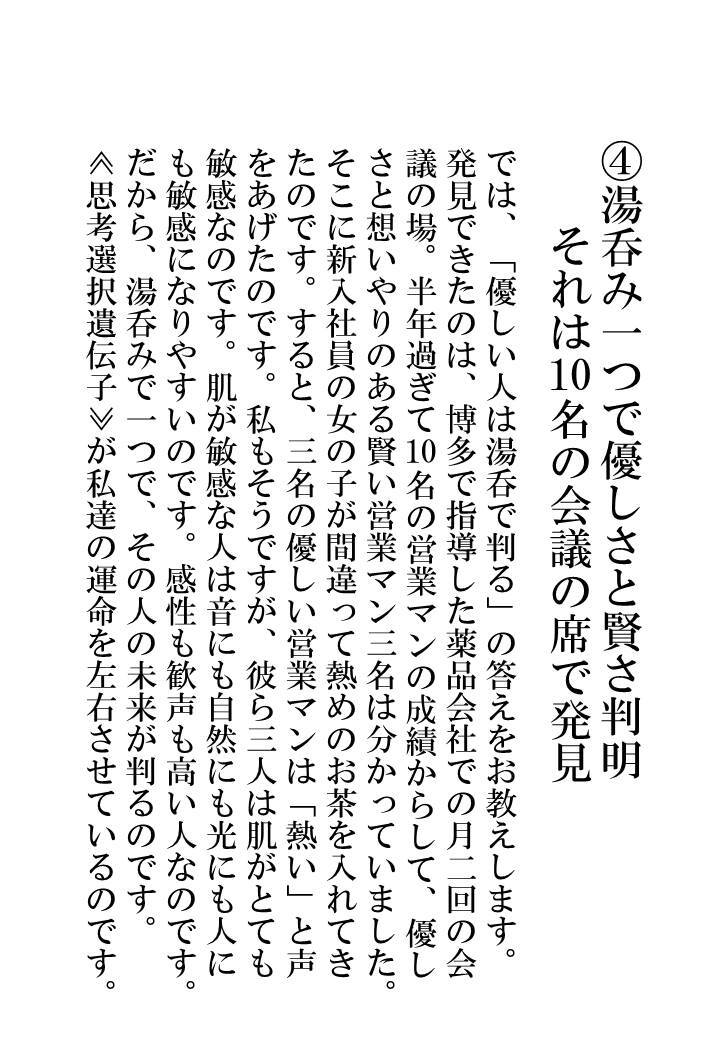 ④湯呑み一つで優しさと賢さ判明
それは10名の会議の席で発見
では、「優しい人は湯呑で判る」の答えをお教えします。
発見できたのは、博多で指導した薬品会社での月二回の会
議の場。半年過ぎて10名の営業マンの成績からして、優し
さと想いやりのある賢い営業マン三名は分かっていました。
そこに新入社員の女の子が間違って熱めのお茶を入れてき
たのです。すると、三名の優しい営業マンは「熱い」と声
をあげたのです。私もそうですが、彼ら三人は肌がとても
敏感なのです。肌が敏感な人は音にも自然にも光にも人に
も敏感になりやすいのです。感性も歓声も高い人なのです。
だから、湯呑みで一つで、その人の未来が判るのです。
≪思考選択遺伝子≫が私達の運命を左右させているのです。